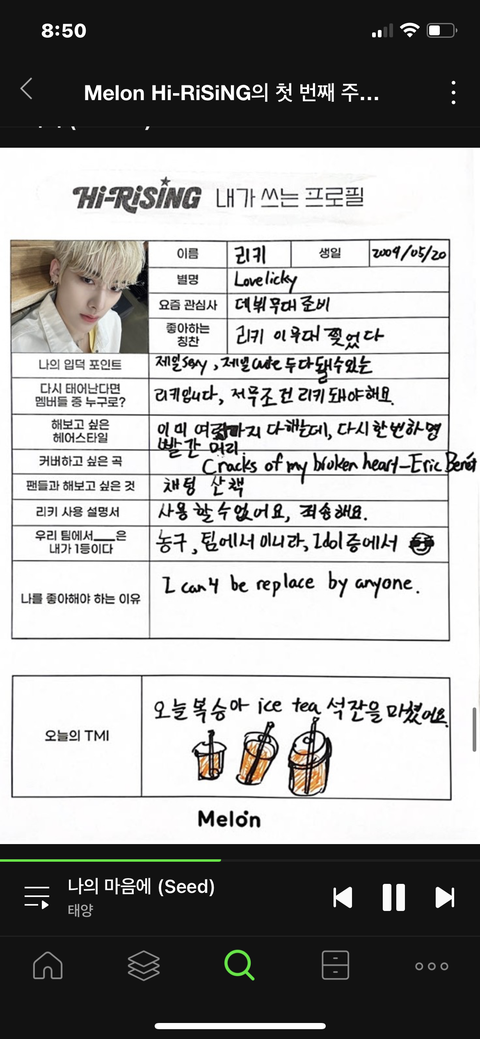 8:50
Melon Hi-RiSiNG의 첫 번째 주...
Hi-RiSiNG 내가 쓰는 프로필
이름 리키 생일 2004/05/20
별명 Lovelicky
요즘 관심사 데뷔무대 준비
좋아하는
칭찬
리키 이 무대 찢었다
나의 입덕 포인트 제일 sexy, 제일 cute 두 다 될 수 있는
다시 태어난다면
멤버들 중 누구로?
리키입니다, 저 무조건 리키 돼야해요.
해보고 싶은
헤어스타일
이미 여러까지 다 해는데, 다시 한번 하면
빨간 머리
커버하고 싶은 곡 Cracks of my broken heart-Eric Benét
팬들과 해보고 싶은 것 채팅 산책
리키 사용 설명서 사용 할 수 없어요, 죄송해요.
우리 팀에서___은
내가 1등이다
농구, 팀에서 아니라, Idol 중에서
나를 좋아해야 하는 이유 I can't be replace by anyone.
오늘의 TMI 오늘 복숭아 ice tea 석잔을 마셨어요.
Melon
나의 마음에 (Seed)
태양